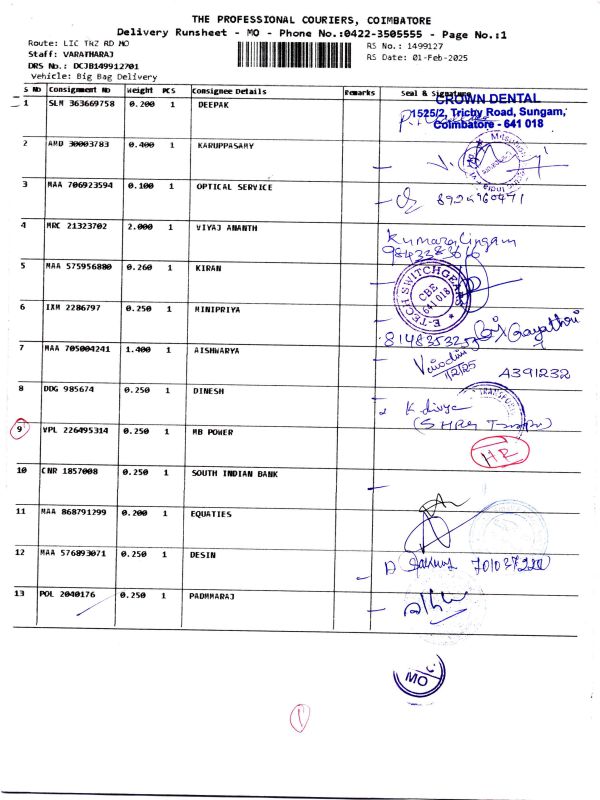 THE PROFESSIONAL COURIERS, COIMBATORE
Delivery Runsheet - MO - Phone No.:0422-3505555 - Page No.:1
Route: LIC TRZ RD MO
RS No.: 1499127
Staff: VARATHARAJ
RS Date: 01-Feb-2025
DRS No.: DCJB149912701
Vehicle: Big Bag Delivery
S No Consignment No Weight PCS Consignee Details Remarks Seal & Signature
1 SLM 363669758 0.200 1 DEEPAK
CROWN DENTAL
1525/2, Trichy Road, Sungam,
Coimbatore - 641 018
2 AMD 30003783 0.400 1 KARUPPASAMY
3 MAA 706923594 0.100 1 OPTICAL SERVICE
4 MRC 21323702 2.000 1 VIYAJ ANANTH
Kumaralingam
5 MAA 575956880 0.260 1 KIRAN
E-TECH SWITCHGEARS
CBE
641 018
6 IXM 2286797 0.250 1 MINIPRIYA
Gayathri
7 MAA 705004241 1.400 1 AISHWARYA
1/2/25 A391232
8 DDG 985674 0.250 1 DINESH
K. divya
9 VPL 226495314 0.250 1 MB POWER
HR
10 CNR 1857008 0.250 1 SOUTH INDIAN BANK
11 MAA 868791299 0.200 1 EQUATIES
12 MAA 576893071 0.250 1 DESIN
13 POL 2040176 0.250 1 PADMMARAJ
MO
1